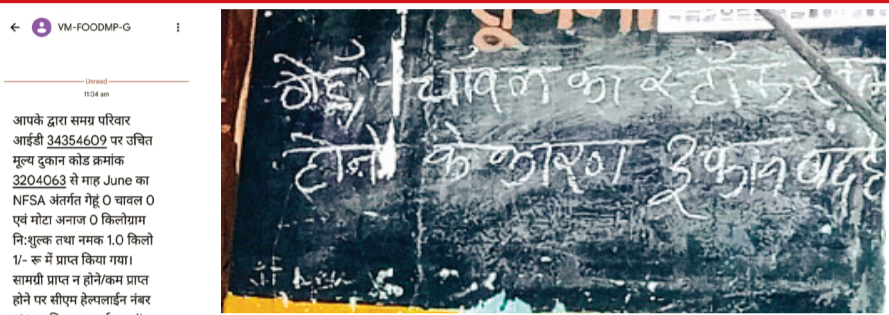 VM-FOODMP-G
Unread
11:04 am
आपके द्वारा समग्र परिवार
आईडी 34354609 पर उचित
मूल्य दुकान कोड क्रमांक
3204063 से माह June का
NFSA अंतर्गत गेहूं 0 चावल 0
एवं मोटा अनाज 0 किलोग्राम
नि:शुल्क तथा नमक 1.0 किलो
1/- रू में प्राप्त किया गया।
सामग्री प्राप्त न होने/कम प्राप्त
होने पर सीएम हेल्पलाईन नंबर
गेहूं चावल का स्टॉक
होने के कारण दुकान बंद है